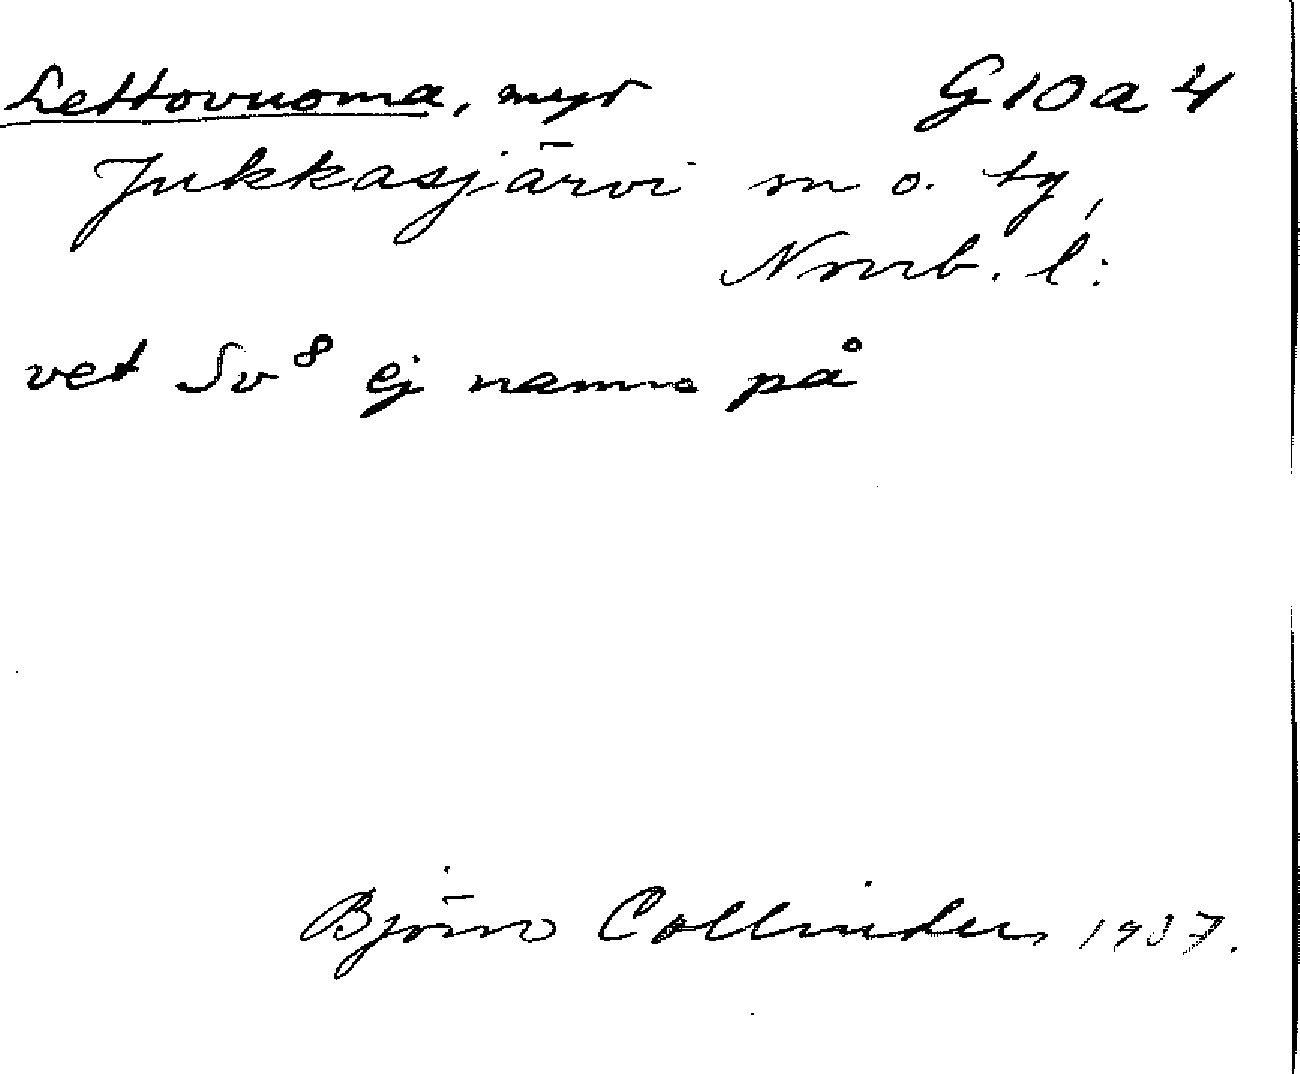 Lettovuoma, myr G10a4
Jukkasjärvi sn o. tg,
Norrb. l:
vet Sv⁸ ej namn på
Björn Collinder, 1937.